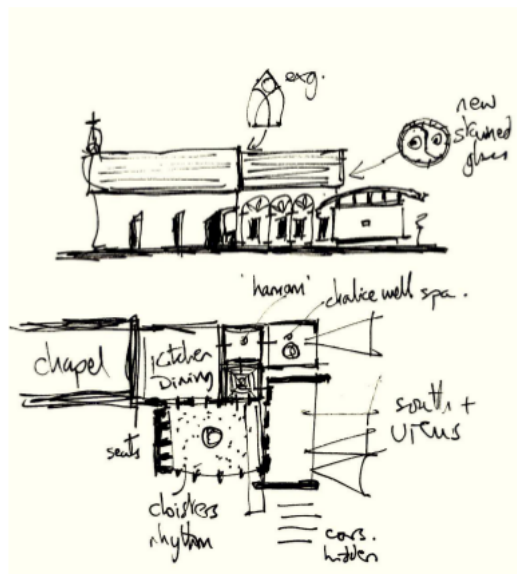 exg.
new
stained
glass
'hamam'
chalice well spa.
chapel
Kitchen
Dining
south +
views
seats
cloisters
rhythm
cars.
hidden